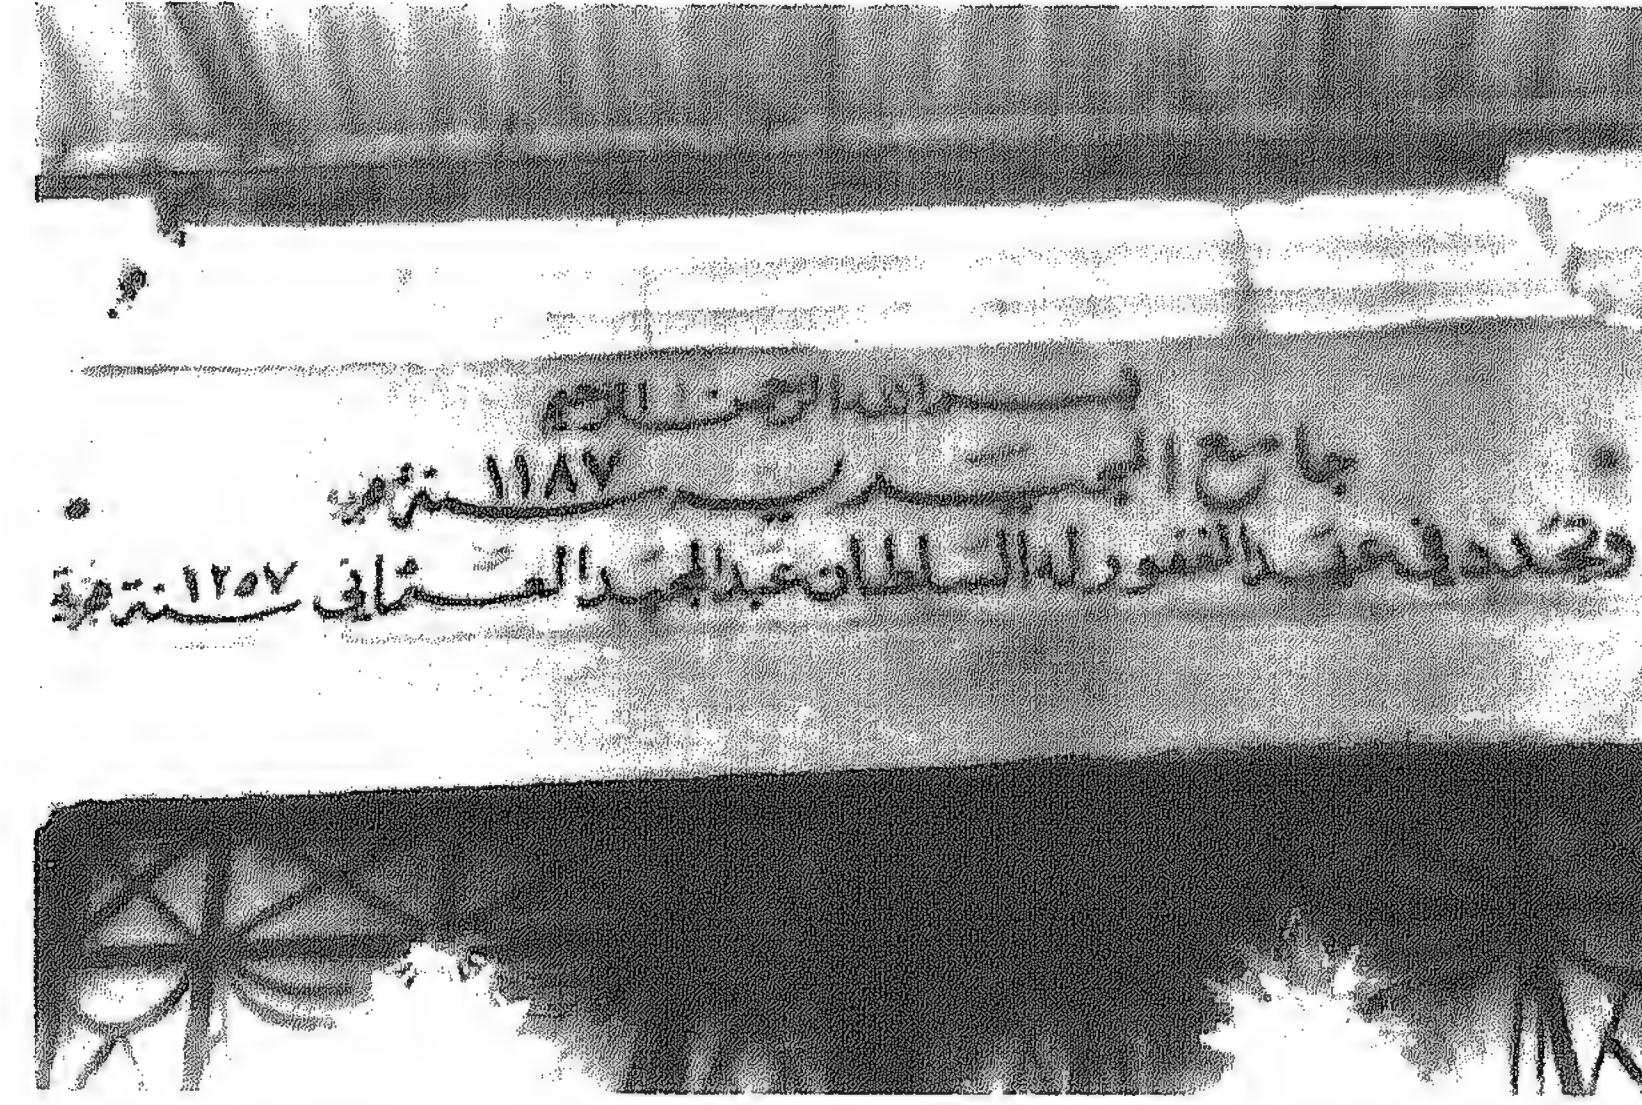 بسم الله الرحمن الرحيم
جامع السيد سنة ١١٨٧ هجرية
وتجدد في عهد المغفور له السلطان عبد المجيد العثماني سنة ١٢٥٧ هجرية